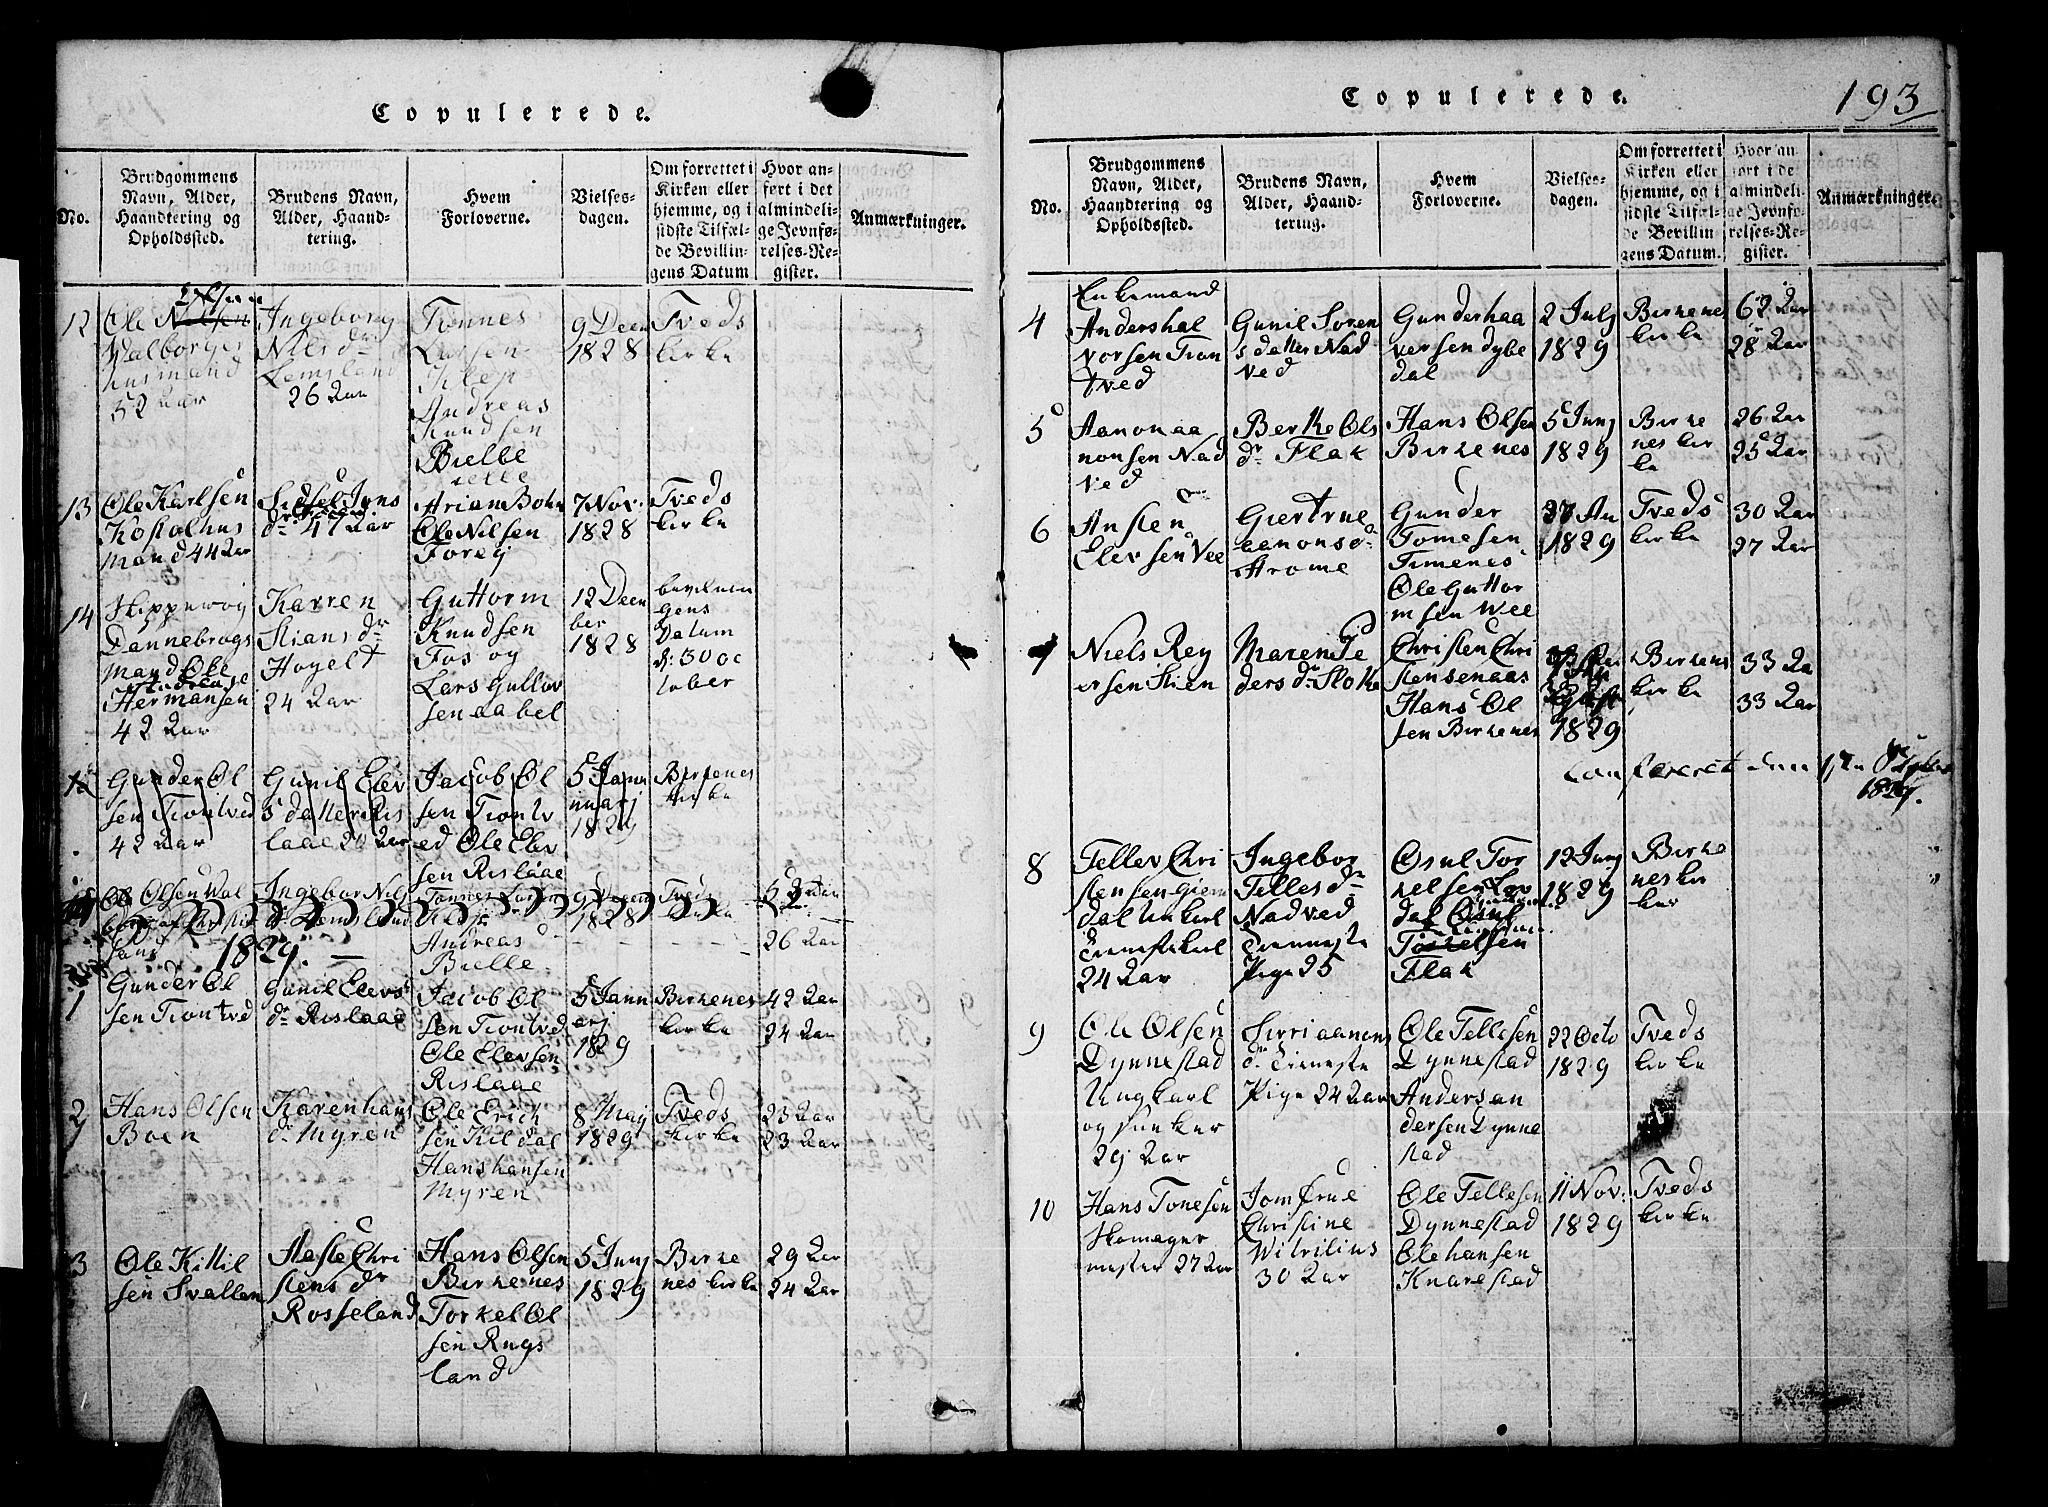 Copulerede.
No.
Brudgommens
Navn, Alder,
Haandtering og
Opholdssted.
Brudens Navn,
Alder, Haand-
tering.
Hvem
Forloverne.
Vielses-
dagen.
Om forrettet i
Kirken eller
hjemme, og i
sidste Tilfæl-
de Bevillin-
gens Datum
Hvor an-
ført i det
almindeli-
ge Jevnfø-
relses-Re-
gister.
Anmærkninger.
12
Ole Nilsen
husmand
52 aar
Ingeborg
Nils dr
Lemsland
26 Aar
Tønnes
Larsen
Klep
Andreas
Knudsen
Bielle
9 Decm
1828
Tveds
kirke
13
Ole Karlsen
Kostøl hus
mand 44 Aar
Sidsel Jens
dr 47 Aar
Arian Bohn
Ole Nilsen
Foreg
7 Nov:
1828
Tveds
kirke
14
Skipper og
Dannebrogs
Mand Ole
Hermansen
42 Aar
Karren
Stians dr
Hogelt
24 Aar
Guttorm
Knudsen
Fos og
Lars Gullov
sen aabel
12 Decm
ber
1828
gens
Datum
d: 30 oc
tober
Gunder Ol
sen Tiontved
42 aar
Gunil Elev
s datter Ris
laae 20 Aar
Jacob Ol
sen Tiontv
ed Ole Elev
sen Rislaae
5 Jann
uarj
1829
Birkenes
kirke
Ole Olsen Wal
Ingebor Nils
dr Lemsland
Tønnes Larsen
Klep
Andreas
Bielle
9 Decem
1828
Tveds
kirke
52 Aar
26 Aar
1829.
1
Gunder Ol
sen Tiontvd
Gunil Elevs
dr Rislaae
Jacob Ol
sen Tiontvd
Ole Elevsen
Rislaae
5 Jann
arj
1829
Birkenes
kirke
42 Aar
24 Aar
2
Hans Olsen
Boen
Karen hans
dr Myren
Ole Erich
sen Kildal
Hans hansen
Myren
8 Maj
1829
Tveds
kirke
23 Aar
23 Aar
3
Ole Kittil
sen Svallen
Aasle Chri
stens dr
Rosseland
Hans Olsen
Birkenes
Torkel Ol
sen Rugs
land
5 Junj
1829
Birke
nes kirke
29 Aar
24 Aar
Copulerede.
193
No.
Brudgommens
Navn, Alder,
Haandtering og
Opholdssted.
Brudens Navn,
Alder, Haand-
tering.
Hvem
Forloverne.
Vielses-
dagen.
Om forrettet i
Kirken eller
hjemme, og i
sidste Tilfæl-
de Bevillin-
gens Datum.
Hvor an-
ført i de
almindeli-
ge Jevnfø-
relses-Re-
gister.
Anmærkninger.
4
Enkemand
Anders hal
vorsen Tion
tved
Gunil Soren
s datter Nad
ved
Gunder haa
versen dybe
dal
2 Julj
1829
Birkenes
kirke
62 Aar
28 Aar
5
Aanon aa
nonsen Nad
ved
Berthe Ols
dr Flak
Hans Olsen
Birkenes
5 Junj
1829
Birke
nes kir
ke
26 Aar
25 Aar
6
Ansten
Elevsen Vee
Giertrue
aanons dr
Strøme
Gunder
Tomesen
Timenes
Ole Guttor
msen Wee
1829
Tveds
kirke
30 Aar
27 Aar
7
Niels Rey
ersen Stien
Maren Pe
ders dr Slotte
Christen Chri
stensen aas
Hans Ol
sen Birkenes
1829
Birkens
kirke
33 Aa
33 Aar
8
Tellev Chri
stensen
dal Unkarl
Tienestekarl
24 Aar
Ingebor
Telles dr
Nadved
Tienneste
Pige 25
Osul Tor
kelsen
dal Osul
Torkelsen
Flak
12 Junj
1829
Birke
nes kir
ker
9
Ole Olsen
Dynnestad
Ungkarl
og sunker
29 Aar
Sirri aanons
dr Tienneste
Pige 24 Aar
Ole Tellesen
Dynnestad
Anders an
dersen Dynne
stad
22 Octo
1829
Tveds
kirke
10
Hans Tonesen
Skomager
mester 27 Aar
Jomfrue
Christine
Witrilius
30 Aar
Ole Tellesen
Dynnestad
Ole hansen
Knarestad
11 Nov:
1829
Tveds
kirke